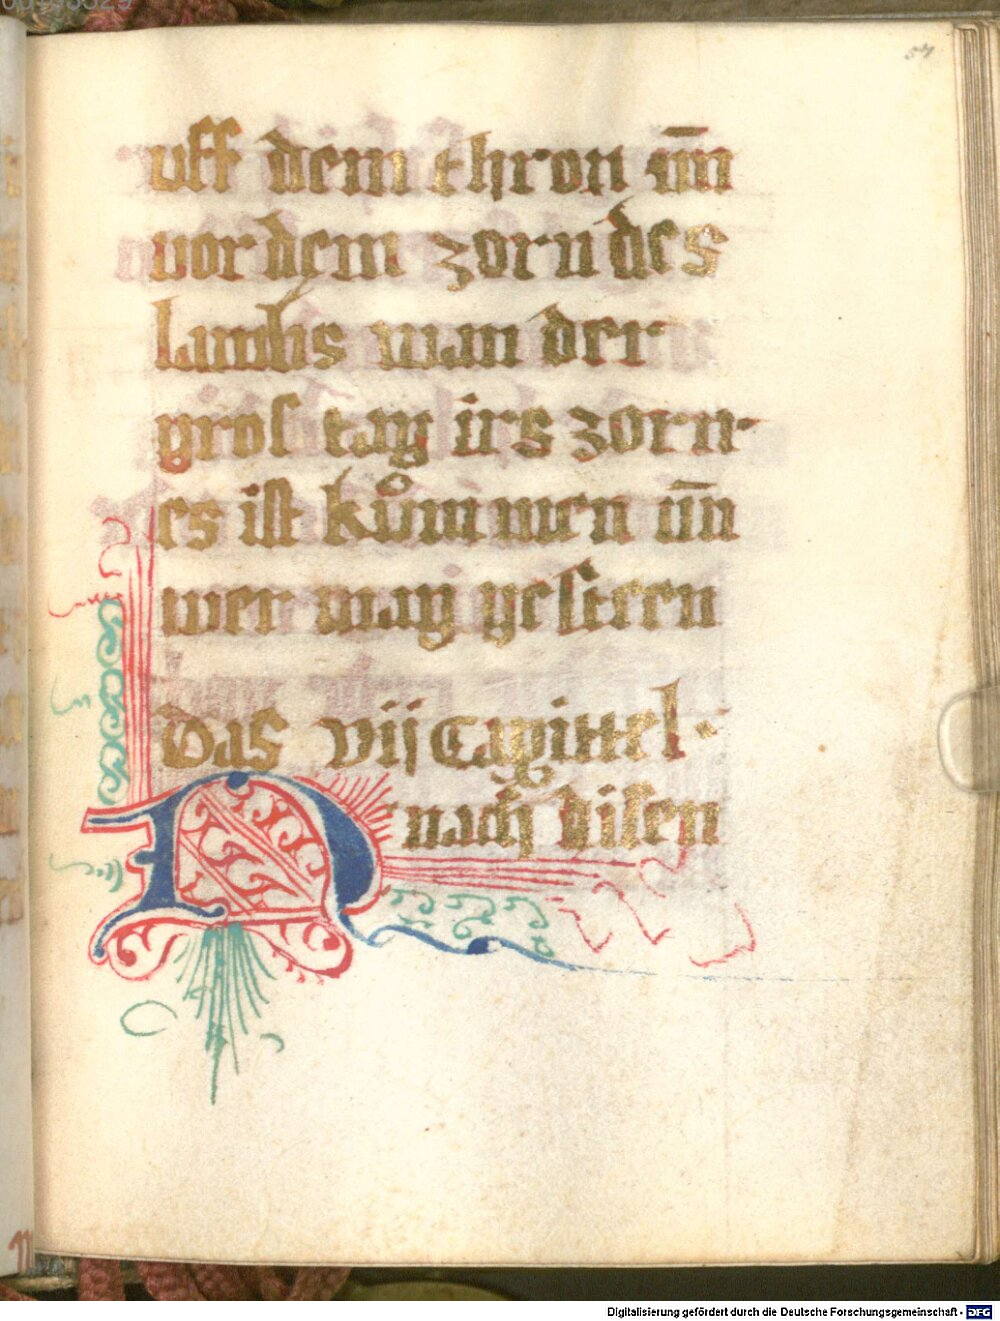 uff dem thron un̄
vor dem zorn des
lambs wan der
gros tag irs zorn·
es ist kůmmen un̄
wer mag gesteen
Das vij Capittel·
Nach disen
Digitalisierung gefördert durch die Deutsche Forschungsgemeinschaft - DFG